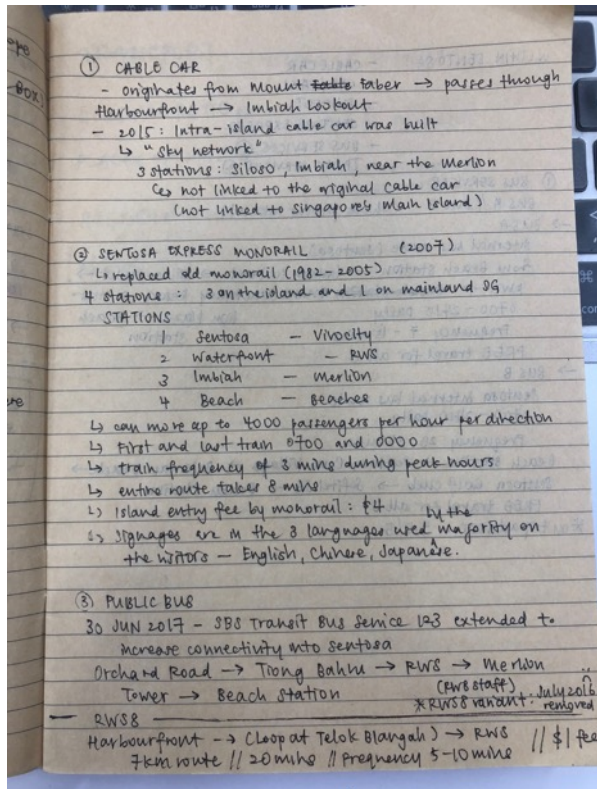 ore
Box)
① CABLE CAR
- originates from Mount Faber → passes through
Harbourfront → Imbiah Lookout
- 2015: Intra-island cable car was built
↳ "Sky network"
3 stations: Siloso, Imbiah, near the Merlion
↳ not linked to the original cable car
(not linked to Singapore's Main Island)
② SENTOSA EXPRESS MONORAIL (2007)
↳ replaced old monorail (1982-2005)
4 stations: 3 on the island and 1 on mainland SG
STATIONS
1 Sentosa - Vivocity
2 Waterfront - RWS
3 Imbiah - Merlion
4 Beach - Beaches
↳ can move up to 4000 passengers per hour per direction
↳ First and last train 0700 and 0000
↳ train frequency of 3 mins during peak hours
↳ entire route takes 8 mins
↳ Island entry fee by monorail: $4
↳ Signages are in the 3 languages used by the majority on
the visitors - English, Chinese, Japanese.
③ PUBLIC BUS
30 JUN 2017 - SBS Transit Bus Service 123 extended to
increase connectivity into Sentosa
Orchard Road → Tiong Bahru → RWS → Merlion
Tower → Beach Station (RWS staff)
*RWS8 variant: July 2016 removed
RWS8
Harbourfront → (Loop at Telok Blangah) → RWS // $1 fee
7km route // 20 mins // Frequency 5-10 mins